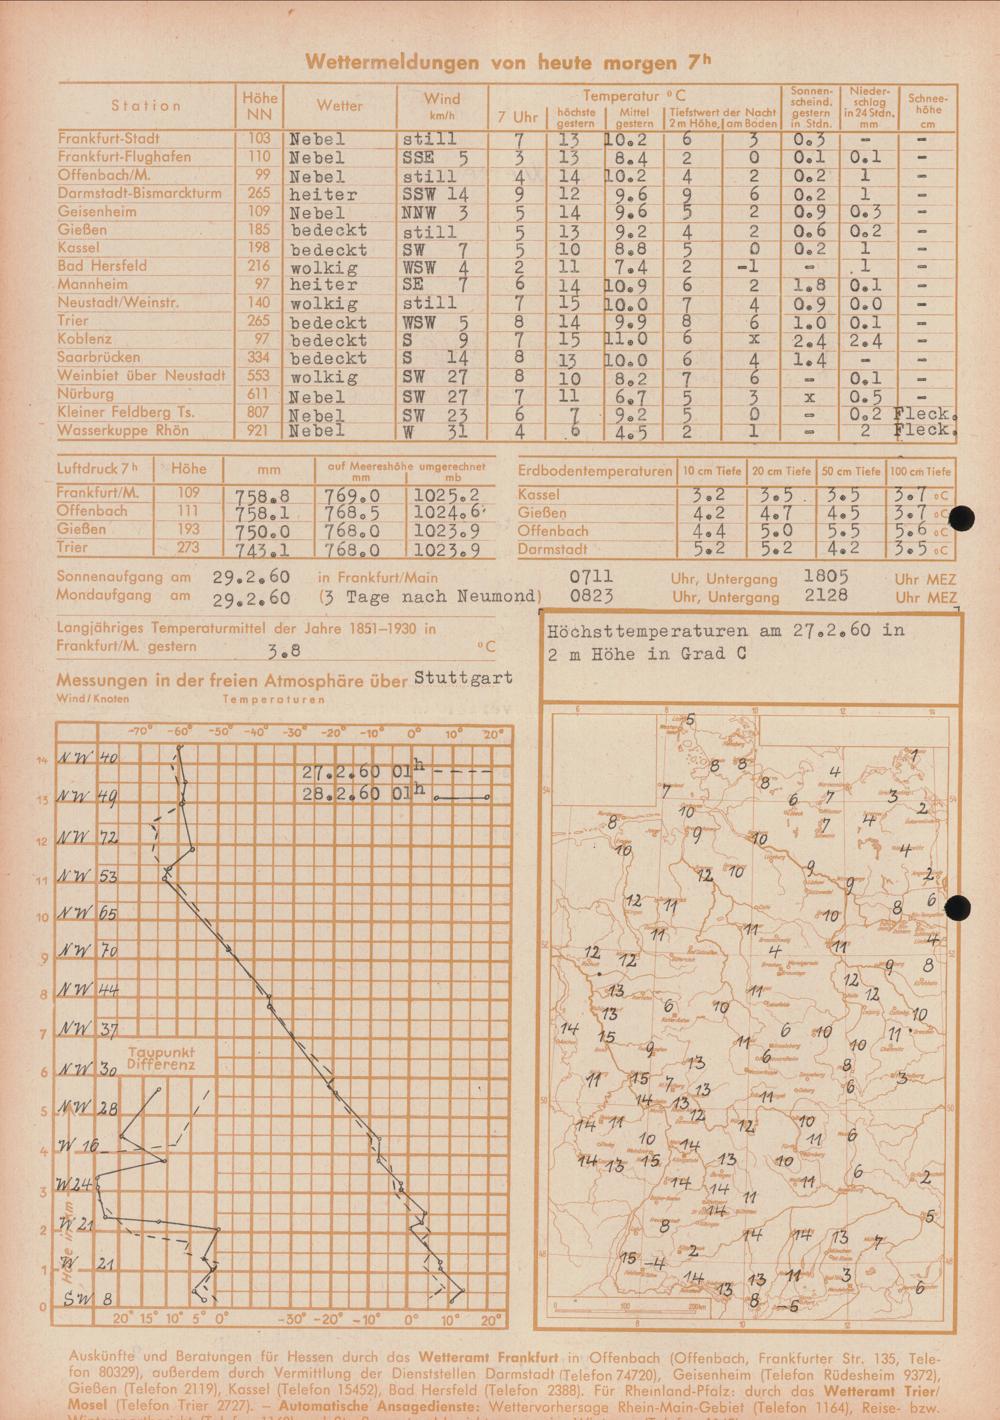 Wettermeldungen von heute morgen 7h
Station Höhe NN Wetter Wind km/h Temperatur °C Sonnenscheind. gestern in Stdn. Niederschlag in 24 Stdn. mm Schneehöhe cm
7 Uhr höchste gestern Mittel gestern Tiefstwert der Nacht 2 m Höhe, am Boden
Frankfurt-Stadt 103 Nebel still 7 13 10.2 6 3 0.3 - -
Frankfurt-Flughafen 110 Nebel SSE 5 3 13 8.4 2 0 0.1 0.1 -
Offenbach/M. 99 Nebel still 4 14 10.2 4 2 0.2 1 -
Darmstadt-Bismarckturm 265 heiter SSW 14 9 12 9.6 9 6 0.2 1 -
Geisenheim 109 Nebel NNW 3 5 14 9.6 5 2 0.9 0.3 -
Gießen 185 bedeckt still 5 13 9.2 4 2 0.6 0.2 -
Kassel 198 bedeckt SW 7 5 10 8.8 5 0 0.2 1 -
Bad Hersfeld 216 wolkig WSW 4 2 11 7.4 2 -1 - 1 -
Mannheim 97 heiter SE 7 6 14 10.9 6 2 1.8 0.1 -
Neustadt/Weinstr. 140 wolkig still 7 15 10.0 7 4 0.9 0.0 -
Trier 265 bedeckt WSW 5 8 14 9.9 8 6 1.0 0.1 -
Koblenz 97 bedeckt S 9 7 15 11.0 6 x 2.4 2.4 -
Saarbrücken 334 bedeckt S 14 8 13 10.0 6 4 1.4 - -
Weinbiet über Neustadt 553 wolkig SW 27 8 10 8.2 7 6 - 0.1 -
Nürburg 611 Nebel SW 27 7 11 6.7 5 3 x 0.5 -
Kleiner Feldberg Ts. 807 Nebel SW 23 6 7 9.2 5 0 - 0.2 Fleck.
Wasserkuppe Rhön 921 Nebel W 31 4 6 4.5 2 1 - 2 Fleck.
Luftdruck 7h Höhe mm auf Meereshöhe umgerechnet mm mb
Frankfurt/M. 109 758.8 769.0 1025.2
Offenbach 111 758.1 768.5 1024.6
Gießen 193 750.0 768.0 1023.9
Trier 273 743.1 768.0 1023.9
Erdbodentemperaturen 10 cm Tiefe 20 cm Tiefe 50 cm Tiefe 100 cm Tiefe
Kassel 3.2 3.5 3.5 3.7 °C
Gießen 4.2 4.7 4.5 3.7 °C
Offenbach 4.4 5.0 5.5 5.6 °C
Darmstadt 5.2 5.2 4.2 3.5 °C
Sonnenaufgang am 29.2.60 in Frankfurt/Main 0711 Uhr, Untergang 1805 Uhr MEZ
Mondaufgang am 29.2.60 (3 Tage nach Neumond) 0823 Uhr, Untergang 2128 Uhr MEZ
Langjähriges Temperaturmittel der Jahre 1851–1930 in
Frankfurt/M. gestern 3.8 °C
Messungen in der freien Atmosphäre über Stuttgart
Wind/Knoten Temperaturen
-70° -60° -50° -40° -30° -20° -10° 0° 10° 20°
27.2.60 01h
28.2.60 01h
14 NW 40
13 NW 49
12 NW 72
11 NW 53
10 NW 65
9 NW 70
8 NW 44
7 NW 37
6 NW 30
Taupunkt
Differenz
5 NW 28
4 W 16
3 W 24
2 W 21
1 W 21
0 SW 8
Höhe in km
20° 15° 10° 5° 0° -30° -20° -10° 0° 10° 20°
Höchsttemperaturen am 27.2.60 in
2 m Höhe in Grad C
6 8 10 12 14
5
8 8 8 4 1
7 6 7 3 2
8 10 9 10 7 4
10 12 10 9 9 4 2
12 11 11 11 10 8 6
12 12 4 11 9 8 4
13 11 12 12
14 13 6 10 6 10 11 10
15 9 11 6 10
11 15 7 13 13 8 6 3
14 13 12 11
14 11 10 14 12 10 11 6
14 13 15 13 10 6
14 14 11 11 2
14 5
8 14 14 13 7
15 -4 2
14 13 13 11 3 6
8 -5
0 100 200km
Auskünfte und Beratungen für Hessen durch das Wetteramt Frankfurt in Offenbach (Offenbach, Frankfurter Str. 135, Tele-
fon 80329), außerdem durch Vermittlung der Dienststellen Darmstadt (Telefon 74720), Geisenheim (Telefon Rüdesheim 9372),
Gießen (Telefon 2119), Kassel (Telefon 15452), Bad Hersfeld (Telefon 2388). Für Rheinland-Pfalz: durch das Wetteramt Trier/
Mosel (Telefon Trier 2727). – Automatische Ansagedienste: Wettervorhersage Rhein-Main-Gebiet (Telefon 1164), Reise- bzw.